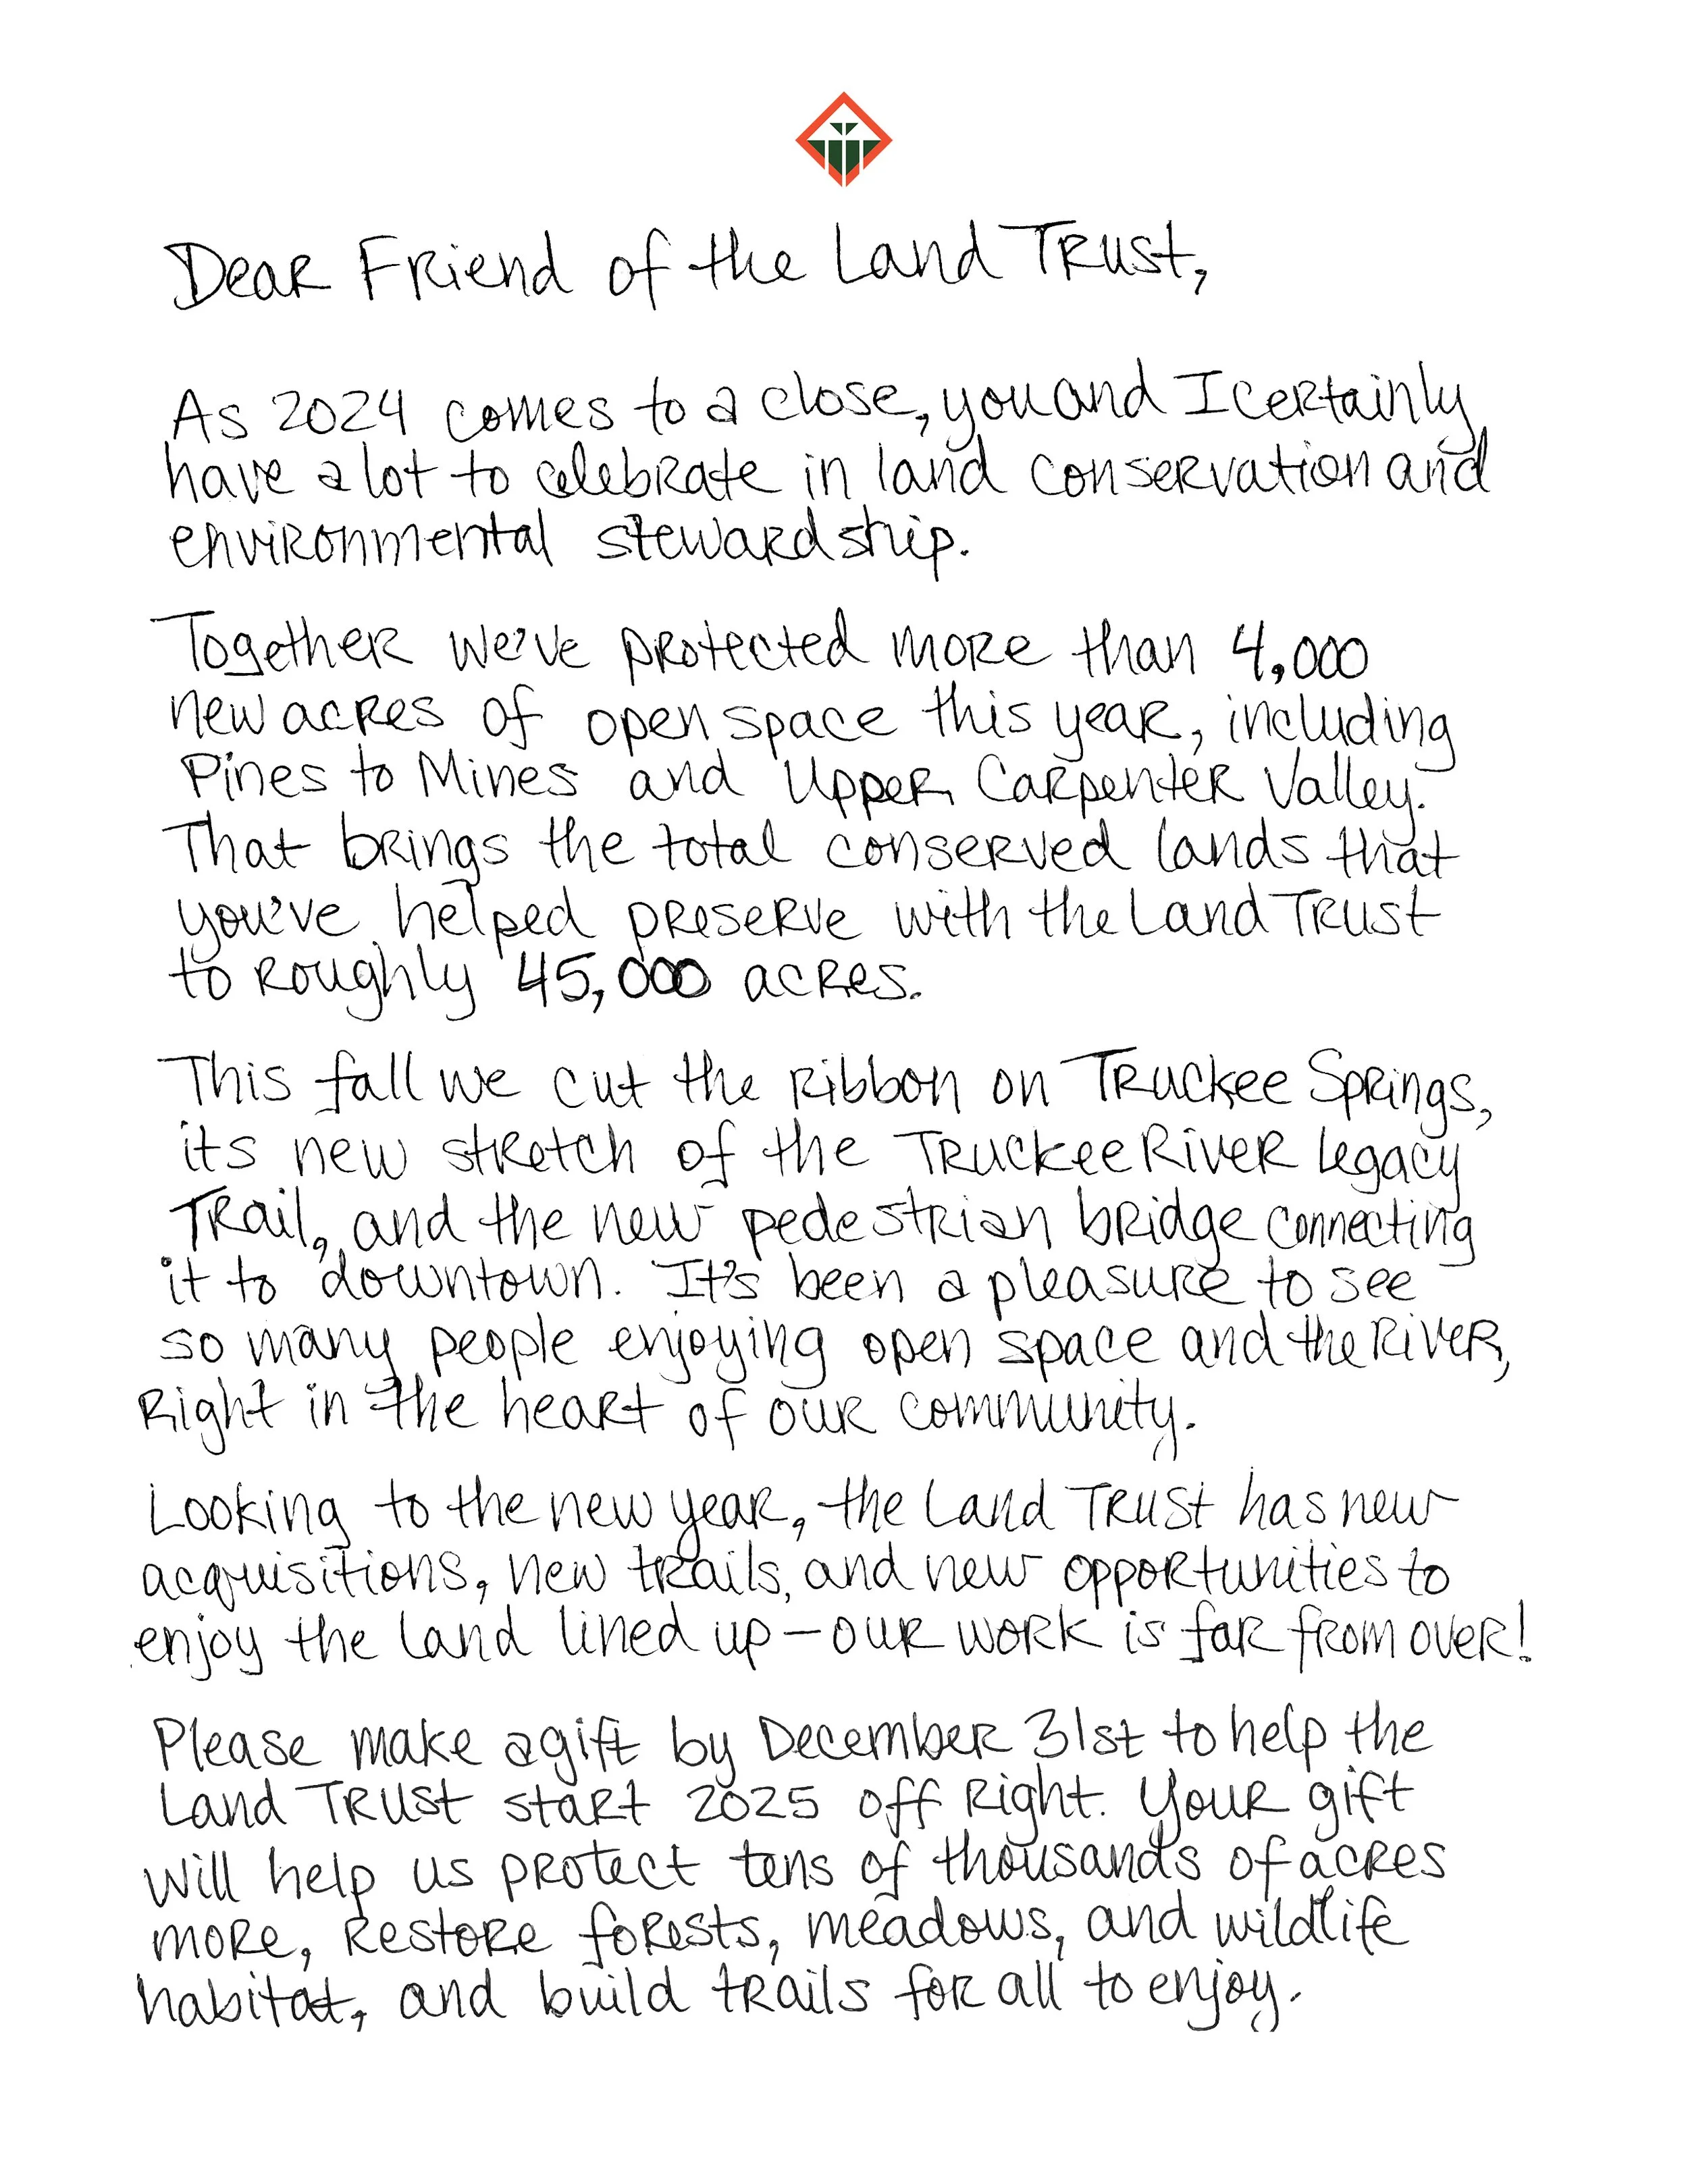 Dear Friend of the Land Trust,
As 2024 comes to a close, you and I certainly
have a lot to celebrate in land conservation and
environmental stewardship.
Together we've protected more than 4,000
new acres of open space this year, including
Pines to Mines and Upper Carpenter Valley.
That brings the total conserved lands that
you've helped preserve with the Land Trust
to roughly 45,000 acres.
This fall we cut the ribbon on Truckee Springs,
its new stretch of the Truckee River Legacy
Trail, and the new pedestrian bridge connecting
it to downtown. It's been a pleasure to see
so many people enjoying open space and the River,
right in the heart of our community.
Looking to the new year, the Land Trust has new
acquisitions, new trails, and new opportunities to
enjoy the land lined up – our work is far from over!
Please make a gift by December 31st to help the
Land Trust start 2025 off right. Your gift
will help us protect tens of thousands of acres
more, restore forests, meadows, and wildlife
habitat, and build trails for all to enjoy.